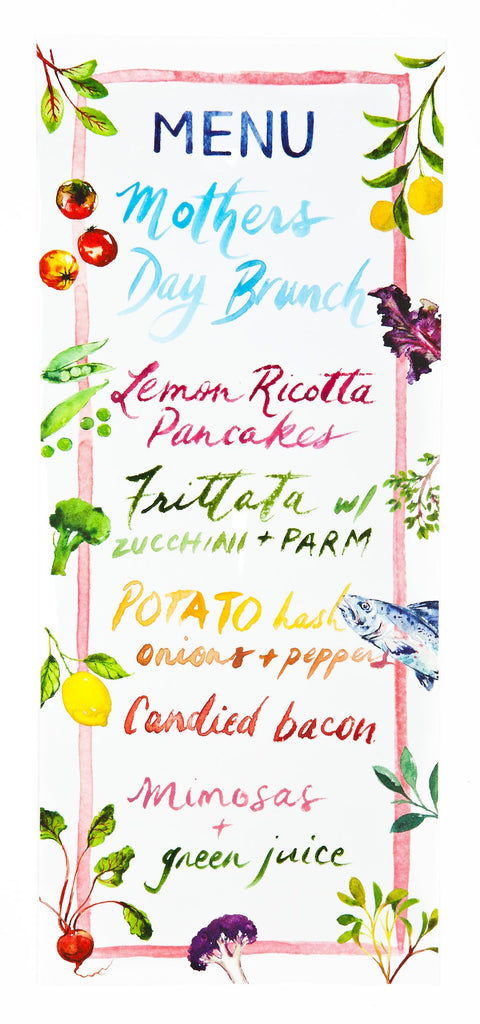 MENU
Mothers
Day Brunch
Lemon Ricotta
Pancakes
Frittata w/
ZUCCHINI + PARM
POTATO hash
onions + peppers
Candied bacon
Mimosas
+
green juice